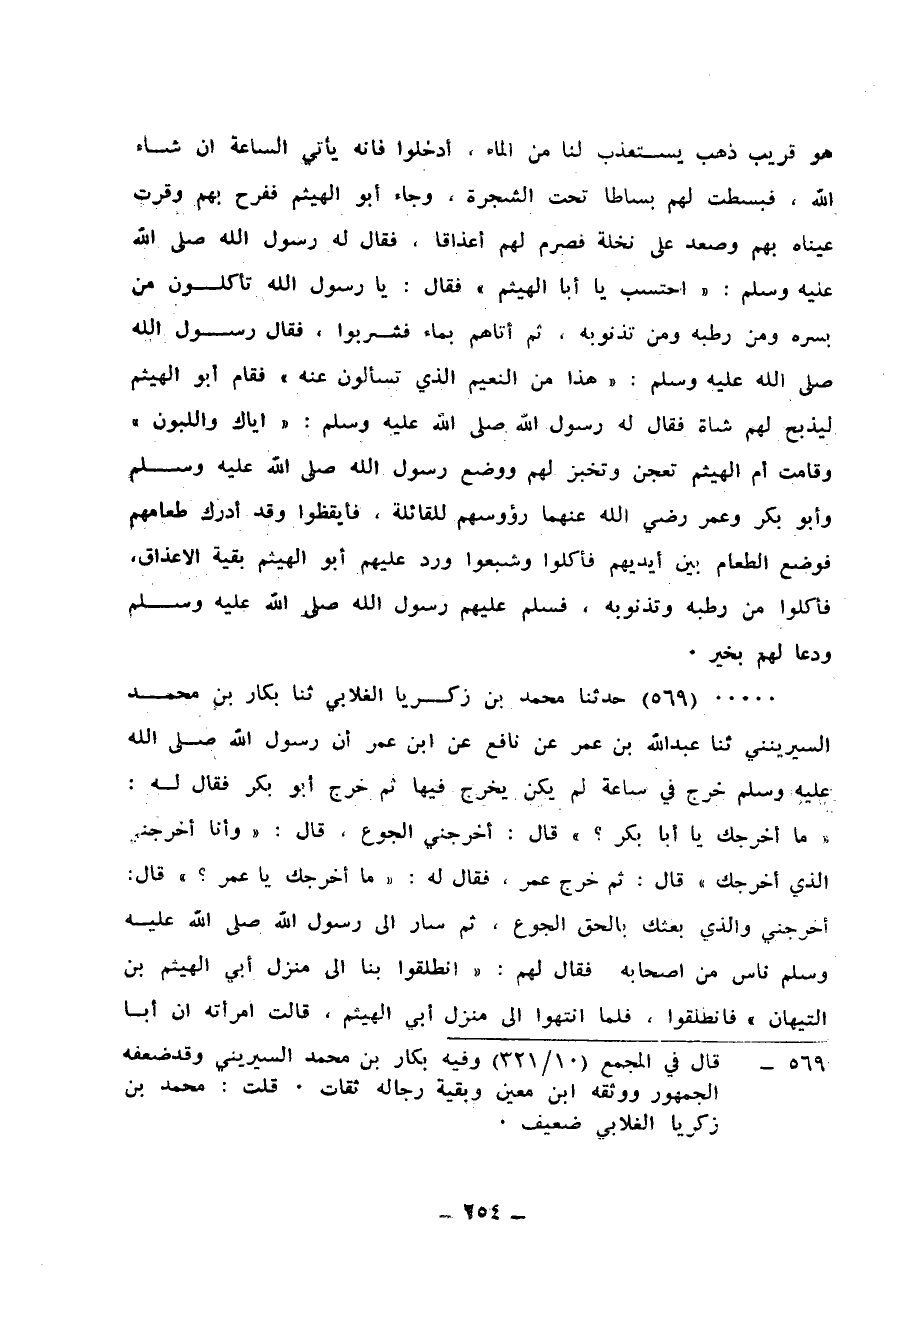 هو قريب ذهب يستعذب لنا من الماء ، أدخلوا فانه يأتي الساعة ان شاء
الله ، فبسطت لهم بساطا تحت الشجرة ، وجاء أبو الهيثم ففرح بهم وقرت
عيناه بهم وصعد على نخلة فصرم لهم أعذاقا ، فقال له رسول الله صلى الله
عليه وسلم : « احتسب يا أبا الهيثم » فقال : يا رسول الله تأكلون من
بسره ومن رطبه ومن تذنوبه ، ثم أتاهم بماء فشربوا ، فقال رسول الله
صلى الله عليه وسلم : « هذا من النعيم الذي تسألون عنه » فقام أبو الهيثم
ليذبح لهم شاة فقال له رسول الله صلى الله عليه وسلم : « اياك واللبون »
وقامت أم الهيثم تعجن وتخبز لهم ووضع رسول الله صلى الله عليه وسلم
وأبو بكر وعمر رضي الله عنهما رؤوسهم للقائلة ، فأيقظوا وقد أدرك طعامهم
فوضع الطعام بين أيديهم فأكلوا وشبعوا ورد عليهم أبو الهيثم بقية الاعذاق،
فأكلوا من رطبه وتذنوبه ، فسلم عليهم رسول الله صلى الله عليه وسلم
ودعا لهم بخير ٠
٠٠٠٠٠ (٥٦٩) حدثنا محمد بن زكريا الغلابي ثنا بكار بن محمد
السيرينني ثنا عبدالله بن عمر عن نافع عن ابن عمر أن رسول الله صلى الله
عليه وسلم خرج في ساعة لم يكن يخرج فيها ثم خرج أبو بكر فقال له :
« ما أخرجك يا أبا بكر ؟ » قال : أخرجني الجوع ، قال : « وأنا أخرجني
الذي أخرجك » قال : ثم خرج عمر ، فقال له : « ما أخرجك يا عمر ؟ » قال:
أخرجني والذي بعثك بالحق الجوع ، ثم سار الى رسول الله صلى الله عليه
وسلم ناس من اصحابه فقال لهم : « انطلقوا بنا الى منزل أبي الهيثم بن
التيهان » فانطلقوا ، فلما انتهوا الى منزل أبي الهيثم ، قالت امرأته ان أبا
٥٦٩ ـ قال في المجمع (٣٢١/١٠) وفيه بكار بن محمد السيريني وقدضعفه
الجمهور ووثقه ابن معين وبقية رجاله ثقات ٠ قلت : محمد بن
زكريا الغلابي ضعيف ٠
ـ ٢٥٤ ـ